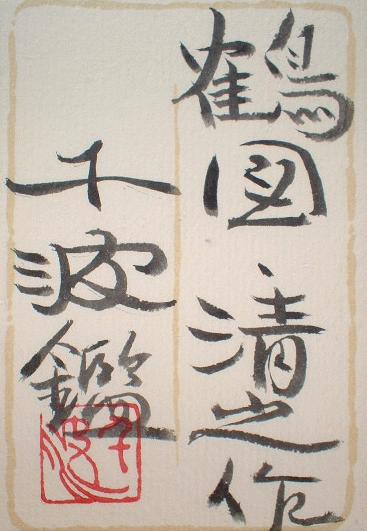 鶴図 清之作
千波鑑
千波